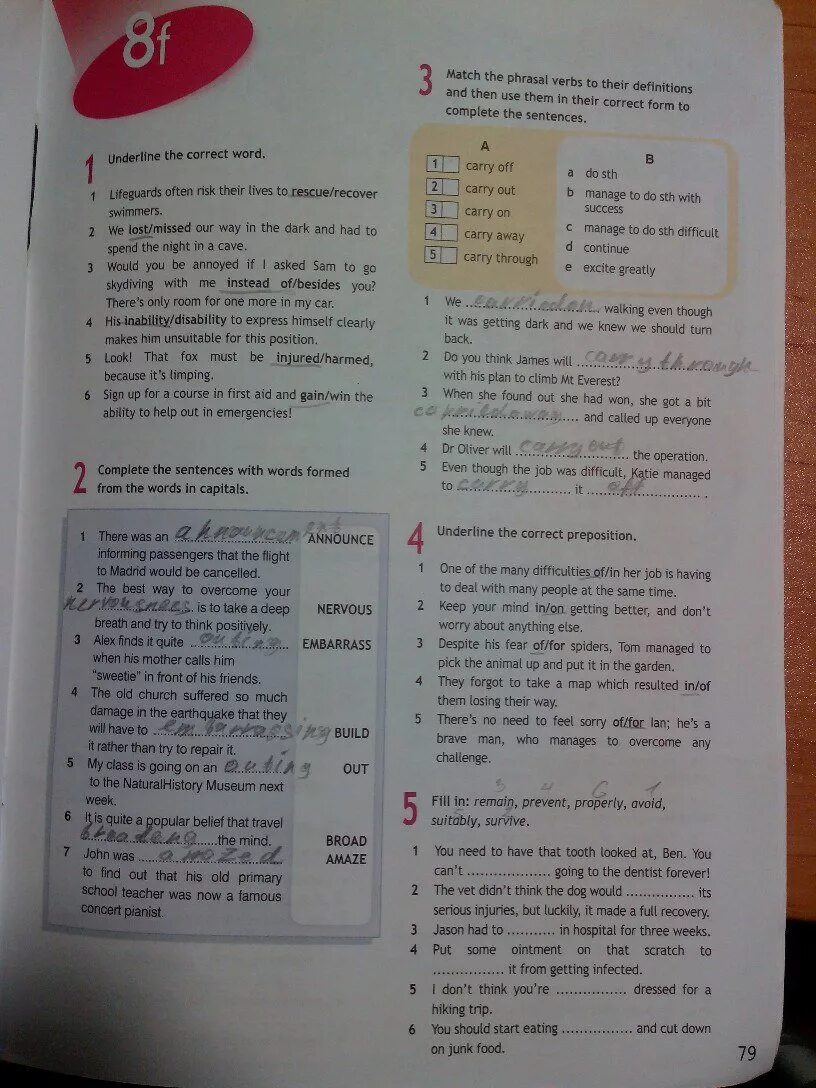 8f
1 Underline the correct word.
1 Lifeguards often risk their lives to rescue/recover
swimmers.
2 We lost/missed our way in the dark and had to
spend the night in a cave.
3 Would you be annoyed if I asked Sam to go
skydiving with me instead of/besides you?
There's only room for one more in my car.
4 His inability/disability to express himself clearly
makes him unsuitable for this position.
5 Look! That fox must be injured/harmed,
because it's limping.
6 Sign up for a course in first aid and gain/win the
ability to help out in emergencies!
2 Complete the sentences with words formed
from the words in capitals.
1 There was an announcement ANNOUNCE
informing passengers that the flight
to Madrid would be cancelled.
2 The best way to overcome your
nervousnees is to take a deep NERVOUS
breath and try to think positively.
3 Alex finds it quite outing EMBARRASS
when his mother calls him
"sweetie" in front of his friends.
4 The old church suffered so much
damage in the earthquake that they
will have to embarrassing BUILD
it rather than try to repair it.
5 My class is going on an outing OUT
to the NaturalHistory Museum next
week.
6 It is quite a popular belief that travel
broadens the mind. BROAD
7 John was amazed AMAZE
to find out that his old primary
school teacher was now a famous
concert pianist.
3 Match the phrasal verbs to their definitions
and then use them in their correct form to
complete the sentences.
A
1 carry off
2 carry out
3 carry on
4 carry away
5 carry through
B
a do sth
b manage to do sth with
success
c manage to do sth difficult
d continue
e excite greatly
1 We carried on walking even though
it was getting dark and we knew we should turn
back.
2 Do you think James will carry through
with his plan to climb Mt Everest?
3 When she found out she had won, she got a bit
away and called up everyone
she knew.
4 Dr Oliver will carry out the operation.
5 Even though the job was difficult, Katie managed
to carry it off.
4 Underline the correct preposition.
1 One of the many difficulties of/in her job is having
to deal with many people at the same time.
2 Keep your mind in/on getting better, and don't
worry about anything else.
3 Despite his fear of/for spiders, Tom managed to
pick the animal up and put it in the garden.
4 They forgot to take a map which resulted in/of
them losing their way.
5 There's no need to feel sorry of/for Ian; he's a
brave man, who manages to overcome any
challenge.
3 4 6 1
5 Fill in: remain, prevent, properly, avoid,
suitably, survive.
1 You need to have that tooth looked at, Ben. You
can't .................. going to the dentist forever!
2 The vet didn't think the dog would ............... its
serious injuries, but luckily, it made a full recovery.
3 Jason had to ........... in hospital for three weeks.
4 Put some ointment on that scratch to
................ it from getting infected.
5 I don't think you're ............... dressed for a
hiking trip.
6 You should start eating ............... and cut down
on junk food.
79